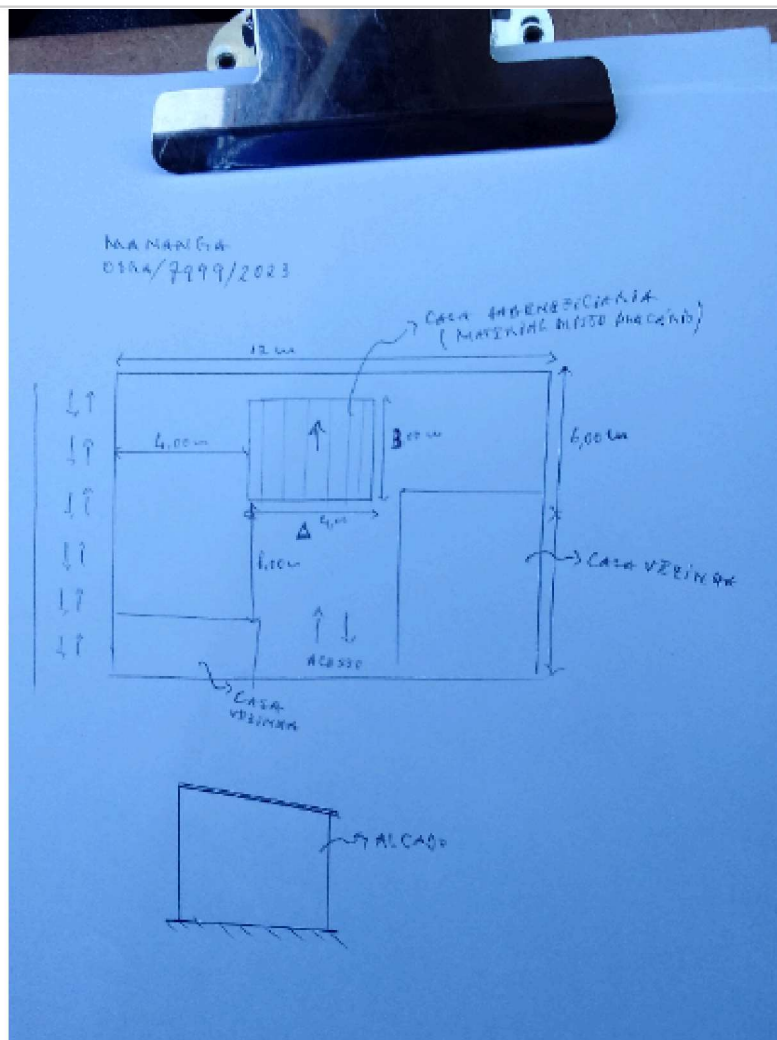 MANANGA
OSGA/7999/2023
CASA
(MATERIAL MISTO PLACÁRIO)
12 m
4,00m
3,00m
6,00m
4,m
1,00m
CASA VEZINHA
ACESSO
CASA
VEZINHA
ALCADO